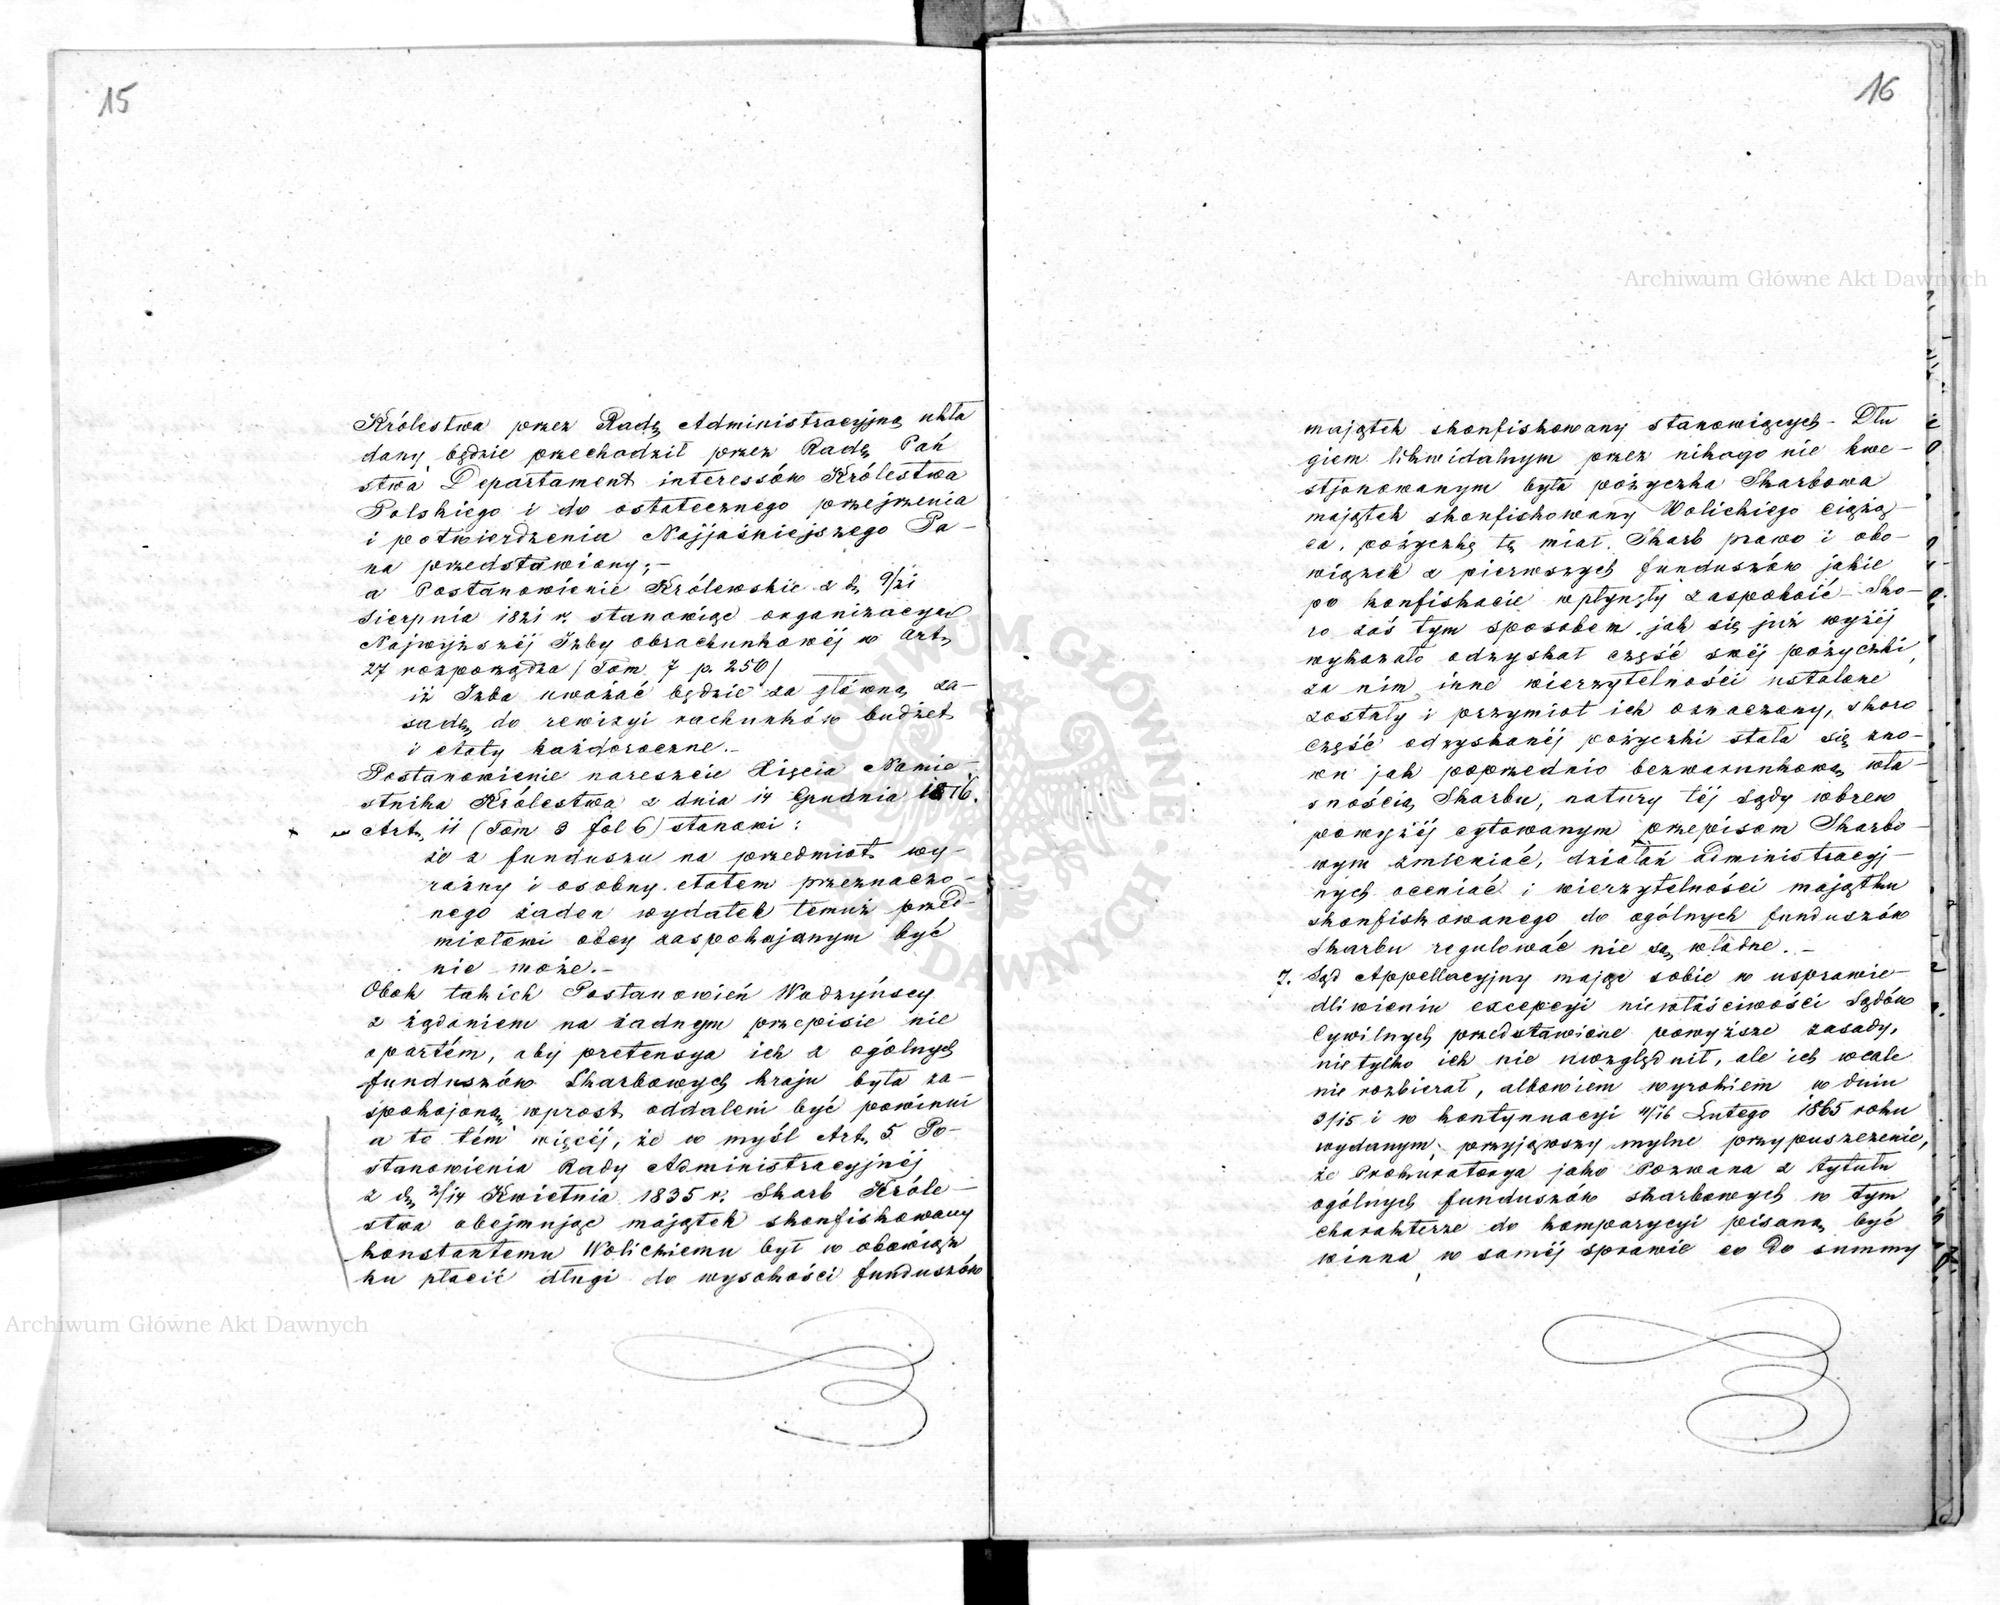 15
Królestwa przez Radę Administracyjną ukła
dany będzie przechodził przez Radę Pań
stwa Departament interessów Królestwa
Polskiego i do ostatecznego przejrzenia
i potwierdzenia Najjaśniejszego Pa-
na przedstawiony;-
a Postanowienie Królewskie z d. 9/21
Sierpnia 1821 r. stanowiąc organizacyą
Najwyższéj Izby obrachunkowéj w Art.
27 rozporządza / Tom 7 p. 250/
iż Izba uważać będzie za główną za-
sadę do rewizyi rachunków budżet
i etaty każdoroczne.-
Postanowienie nareszcie Xięcia Namie-
stnika Królestwa z dnia 14 Grudnia 1816.
w Art. 11 (Tom 3 fol 6) stanowi:
że z funduszu na przedmiot wy-
raźny i osobny etatem przeznaczo-
nego żaden wydatek temuż przed-
miotowi obcy zaspokajanym być
nie może.-
Obok takich Postanowień Wodzyńscy
z żądaniem na żadnym przepisie nie
opartém, aby pretensya ich z ogólnych
funduszów Skarbowych kraju była za-
spokojoną, wprost oddaleni być powinni
a to tém więcéj, że w myśl Art. 5 Po-
stanowienia Rady Administracyjnéj
z d. 2/14 Kwietnia 1835 r. Skarb Króle-
stwa obejmując majątek skonfiskowany
Konstantemu Wolickiemu był w obowiąz
ku płacić długi do wysokości funduszów
16
majątek skonfiskowany stanowiących - Dłu
giem likwidalnym przez nikogo nie kwe-
stjonowanym była pożyczka Skarbowa
majątek skonfiskowany Wolickiego ciążą-
ca, pożyczkę tę miał Skarb prawo i obo-
wiązek z pierwszych funduszów jakie
po konfiskacie wpłynęły zaspokoić - Sko-
ro zaś tym sposobem, jak się już wyżéj
wykazało odzyskał część swéj pożyczki,
za nim inne wierzytelności ustalone
zostały i przymiot ich oznaczony, skoro
część odzyskanéj pożyczki stała się zno-
wu jak poprzednio bezwarunkową wła-
snością Skarbu, natury téj Sądy wbrew
powyżéj cytowanym przepisom Skarbo-
wym zmieniać, działań administracyj-
nych oceniać i wierzytelności majątku
skonfiskowanego do ogólnych funduszów
Skarbu regulować nie są władne.-
7. Sąd Appellacyjny mając sobie w usprawie-
dliwieniu excepcyi niewłaściwości Sądów
Cywilnych przedstawione powyższe zasady,
nie tylko ich nie uwzględnił, ale ich wcale
nie rozbierał, albowiem wyrokiem w dniu
3/15 i w kontynuacyi 4/16 Lutego 1865 roku
wydanym, przyjąwszy mylne przypuszczenie,
że Prokuratorya jako Pozwana z tytułu
ogólnych funduszów skarbowych w tym
charakterze do komparycyi pisaną być
winna, w saméj sprawie co do summy
Archiwum Główne Akt Dawnych
Archiwum Główne Akt Dawnych
ARCHIWUM GŁÓWNE AKT DAWNYCH